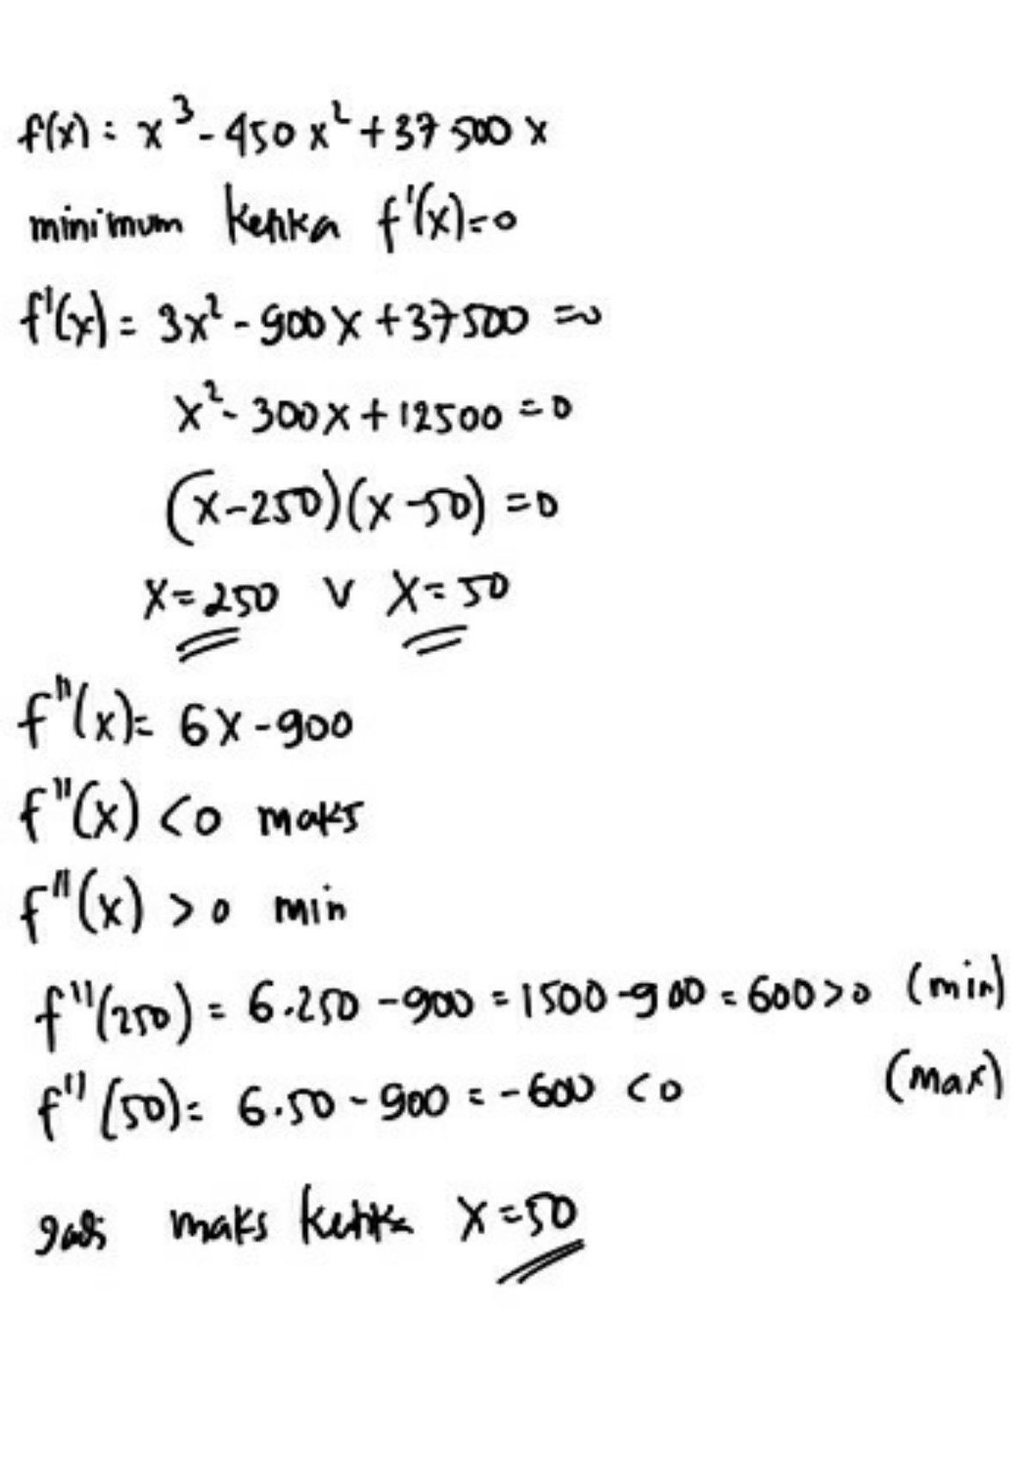 f(x) = x³ - 450x² + 37500x
minimum ketika f'(x)=0
f'(x) = 3x² - 900x + 37500 = 0
x² - 300x + 12500 = 0
(x-250)(x-50) = 0
x = 250 ∨ x = 50
f"(x) = 6x - 900
f"(x) < 0 maks
f"(x) > 0 min
f"(250) = 6.250 - 900 = 1500 - 900 = 600 > 0 (min)
f"(50) = 6.50 - 900 = -600 < 0 (max)
jadi maks ketika x = 50